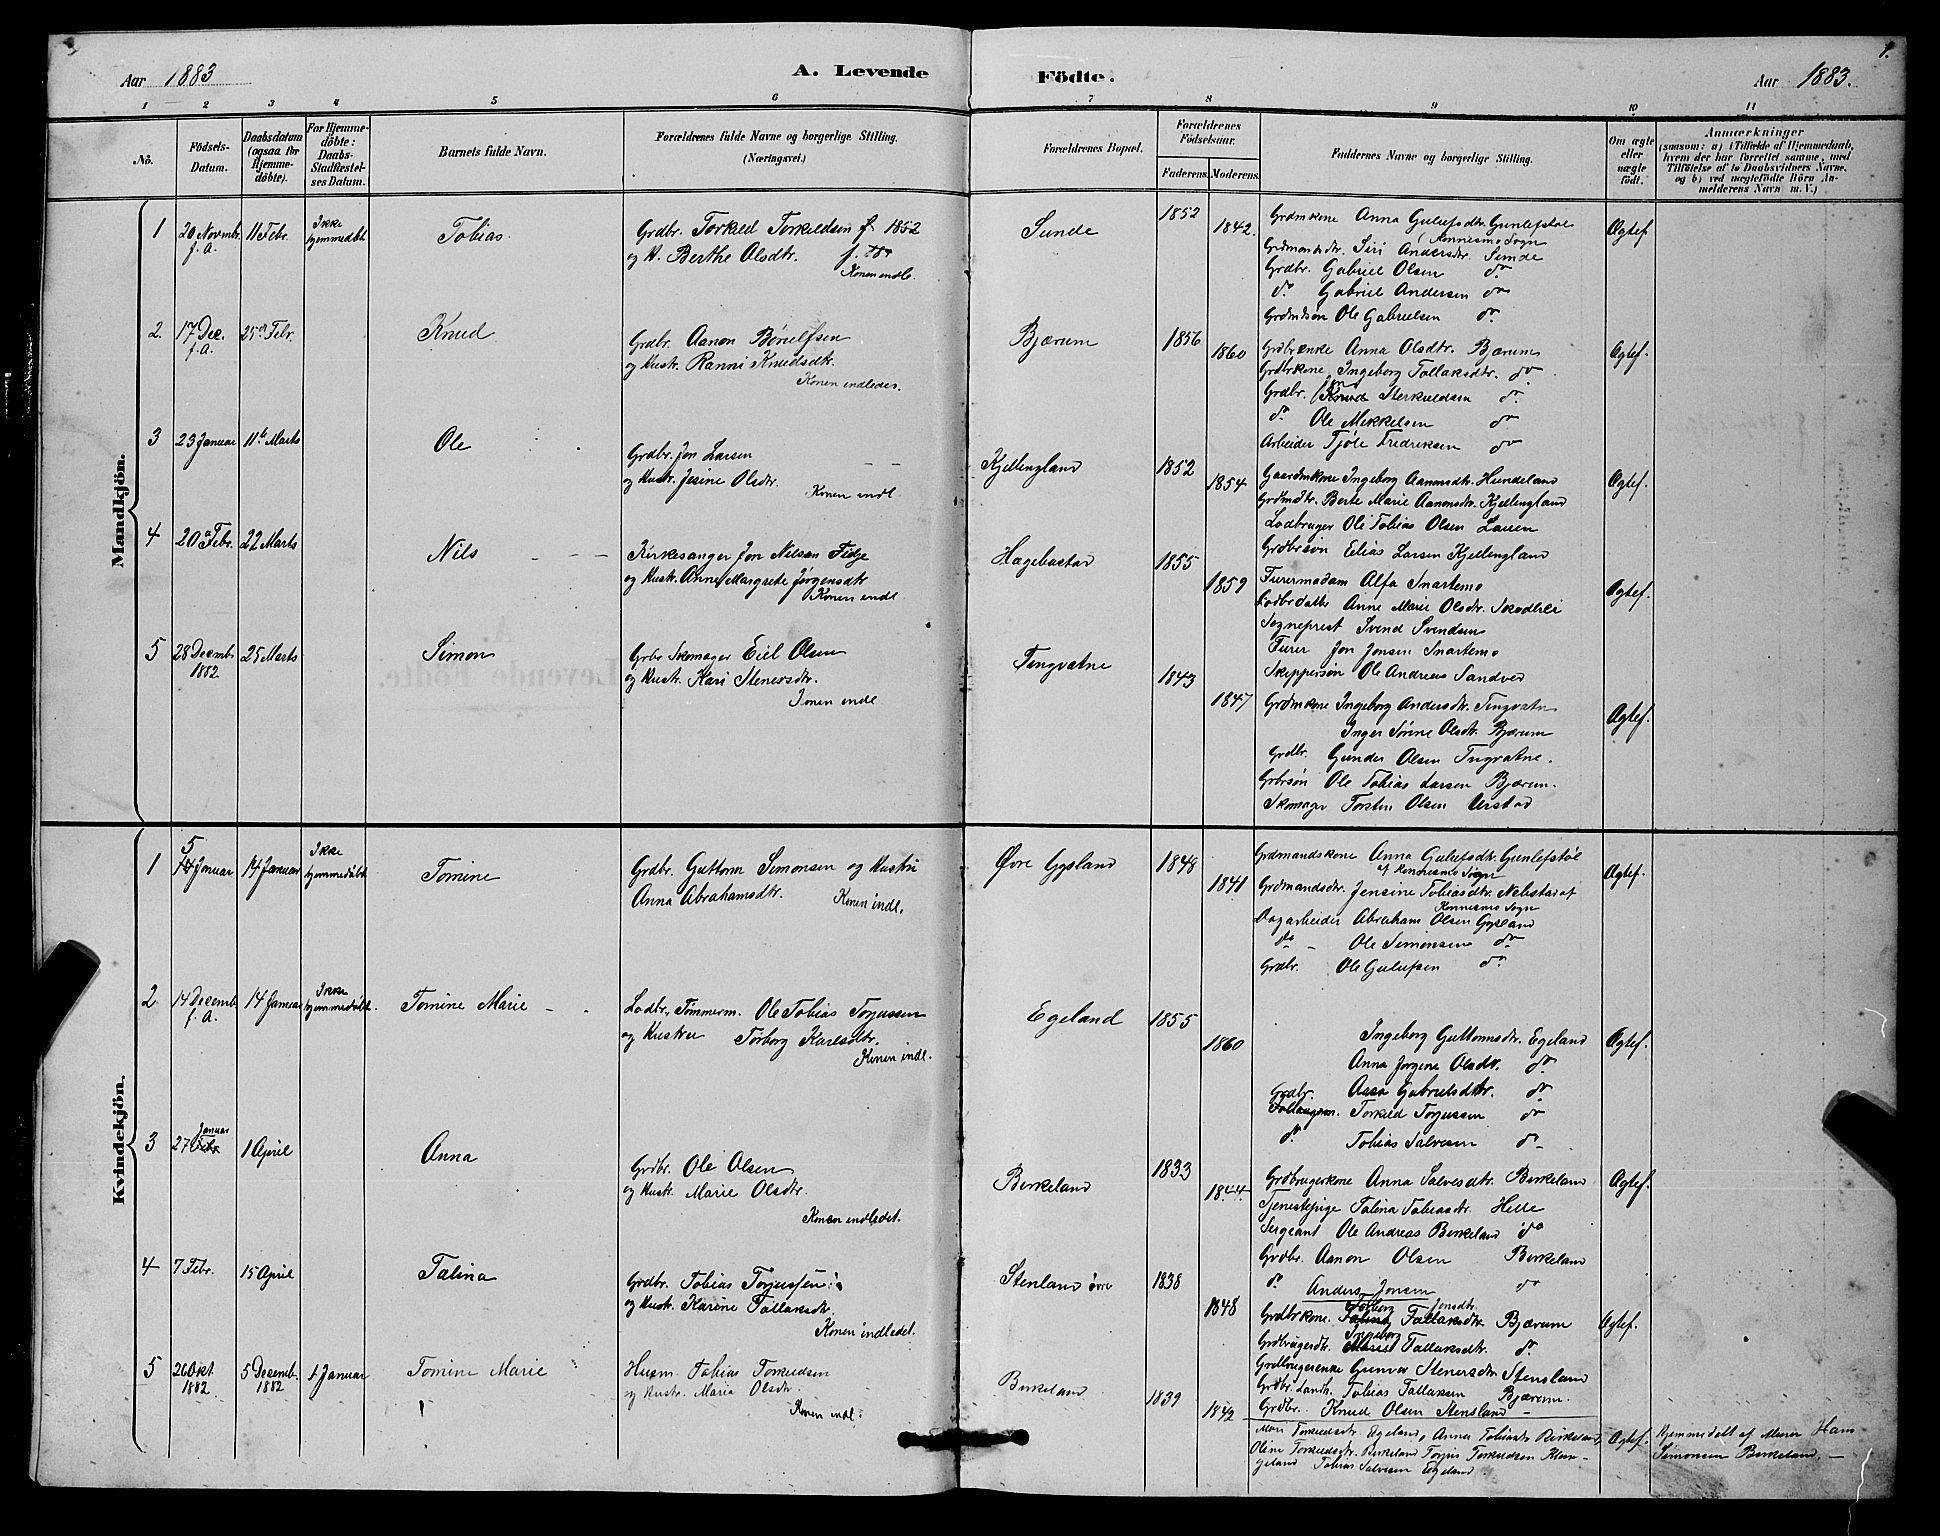 Aar 1883
A. Levende
Födte.
Aar 1883.
1.
1 2 3 4 5 6 7 8 9 10 11
No.
Födsels-Datum.
Daabsdatum (ogsaa for Hjemme-döbte).
For Hjemme-döbte: Daabs-Stadfæstel-ses Datum.
Barnets fulde Navn.
Forældrenes fulde Navne og borgerlige Stilling. (Næringsvei.)
Forældrenes Bopæl.
Forældrenes Födselsaar.
Faderens. Moderens.
Faddernes Navne og borgerlige Stilling.
Om ægte eller uægte födt.
Anmærkninger
(saasom: a) i Tilfælde af Hjemmedaab, hvem der har forrettet samme, med Tilföielse af to Daabsvidners Navne, og b) ved uægtefödte Börn An-melderens Navn m. V.)
Mandkjön.
1 20 Novmbr. f. A. 11 Febr. Ikke hjemmedøbt Tobias.
Grdbr. Torkild Torkildsen f 1852
og H. Berthe Olsdtr.
Konen indle.
Sunde 1852 1842.
Grdmkone Anna Gulufsdtr. Gunlefstøl
Konnesmo Sogn
Grdmandsdtr. Siri Andersdtr. Sunde
Grdbr. Gabriel Olsen do
do Gabriel Andersen do
Grdmdsøn Ole Gabrielsen do
Ægtef
2. 17 Dec. f. A. 25 Febr. Knud
Grdbr. Aanon Børulfsen
og Hustr. Ranni Knudsdtr.
Konen indledes.
Bjærum 1856 1860
Grdbrenke Anna Olsdtr. Bjærum
Grdbrkone Ingeborg Tallaksdtr. do
Grdbr. Sterkuldsen do
do Ole Mikkelsen do
Arbeider Tjøle Fredriksen do
Ægtef.
3 23 Januar 11te Marts Ole
Grdbr. Jon Larsen
og Hustr. Jesine Olsdtr.
Konen indl.
Kjellingland 1852 1854
Gaardmkone Ingeborg Aanonsdtr. Hundeland
Grdmdtr. Berte Marie Aanonsdtr. Kjellingland
Ladbruger Ole Tobias Olsen Lauen
Grdbrsøn Elias Larsen Kjellingland
Ægtef.
4 20 Febr. 22 Marts Nils
Kirkesanger Jon Nilsen Tidge
og Hustr. Anne Margrete Jørgensdtr
Konen indl.
Hægebostad 1855 1859
Furermadam Alfa Snartemo
Ladbrdatter Anne Marie Olsdtr. Skodlei
Sogneprest Svend Svendsen
Furer Jon Jonsen Snartemo
Skippersøn Ole Andreas Sandved
Ægtef.
5 28 Decembr 1882 25 Marts Simon
Grbr Skomager Eiel Olsen
og Hustr. Kari Stenersdtr.
Konen indl
Tingvatne 1843 1847
Grdmkone Ingeborg Andersdtr. Tingvatn
Inger Sørine Olsdtr. Bjærum
Grdbr. Gunder Olsen Tingvatne.
Grbrsøn Ole Tobias Larsen Bjærum.
Skomager Torsten Olsen Urstad
Ægtef.
Kvindekjön.
1 5 Januar 14 Januar Ikke hjemmedøbt Tomine
Grdbr. Guttorm Simonsen og Hustru
Anna Abrahamsdtr. Konen indl.
Øvre Gysland 1848 1841
Grdmandskone Anna Gulufsdtr. Gunlefstøl
af Konnesmo Sogn
Grdmandsdtr. Jensine Tobiasdtr. Nelistad af
Konnesmo Sogn
Dagarbeider Abraham Olsen Gysland
do Ole Simonsen do
Grdbr. Ole Gulufsen do
Ægtef.
2 14 Decemb f. A. 14 Januar Ikke hjemmedøbt. Tomine Marie
Ladbr. Tømmerm. Ole Tobias Torjussen
og Hustru Torborg Karlsdtr.
Konen indl.
Egeland 1855 1860
Ingeborg Guttormsdtr. Egeland
Anna Jorgine Olsdtr. do
Aasa Gabrielsdtr. do
Grdbr. Torkild Torjussen do
do Tobias Salvesen do
Ægtef.
3 27 Januar 1 April Anna
Grdbr. Ole Olsen
og Hustr. Marie Olsdtr.
Konen indledet.
Birkeland 1833 1844
Grdbrugerkone Anna Salvesdtr. Birkeland
Tjenestepige Talina Tobiasdtr. Helle
Sergeant Ole Andreas Birkeland do
Grdbr. Aanon Olsen Birkeland
do Anders Jonsen do
Ægtef.
4 7 Febr. 15 April Talina
Grdbr. Tobias Torjussen
og Hustr. Karine Tallaksdtr.
Konen indledet.
Stenland øvre 1838 1848
Grdbrkone. Tolborg Jonsdtr. Tallaksdtr Bjærum
Grdbrugerdt. Ingeborg Tallaksdtr. do
Grdbrugerenke Gunvor Stenersdtr Stensland
Grdbr. Landh. Tobias Tallaksen Bjærum.
Grdbr. Knud Olsen Stensland
Ægtef.
5 26 Okt 1882 5 Decemb. 1882 1 Januar Tomine Marie
Husm. Tobias Torkildsen
og Hustr. Maria Olsdtr.
Konen indl.
Birkeland 1839 1842
Mari Torkildsdtr. Egeland, Anna Tobiasdtr Birkeland,
Oline Torkildsdtr. Birkeland Torjus Torkildsen Klun-
geland Tobias Salvesen Egeland
Ægtef.
Hjemmedøbt af Murer Hans
Simonsen Birkeland. —